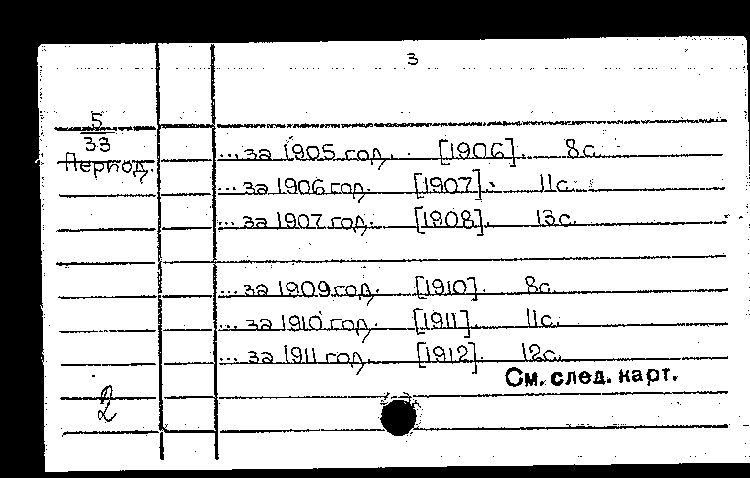 3
5
33
Период.
... за 1905 год. [1906]. 8с.
... за 1906 год. [1907]. 11с.
... за 1907 год. [1908]. 13с.
... за 1909 год. [1910]. 8с.
... за 1910 год. [1911]. 11с.
... за 1911 год. [1912]. 12с.
См. след. карт.
2